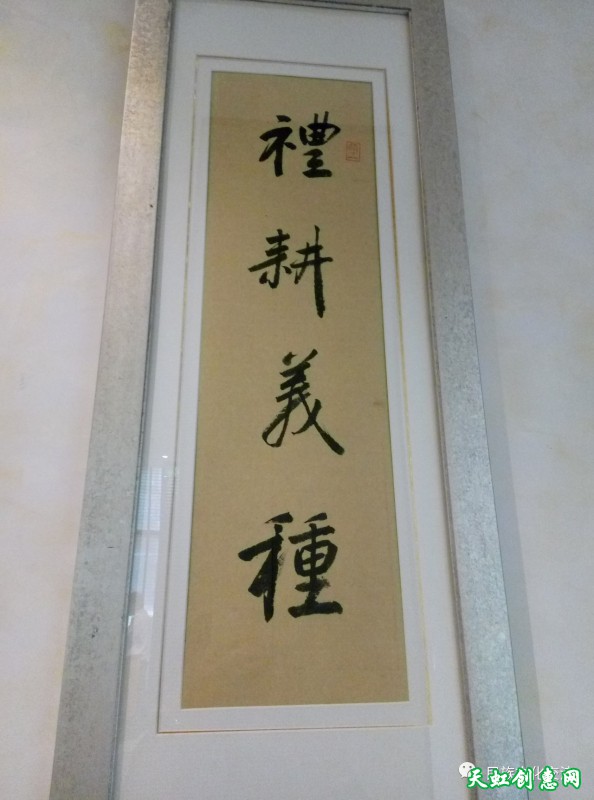 禮耕義種
天虹创惠网